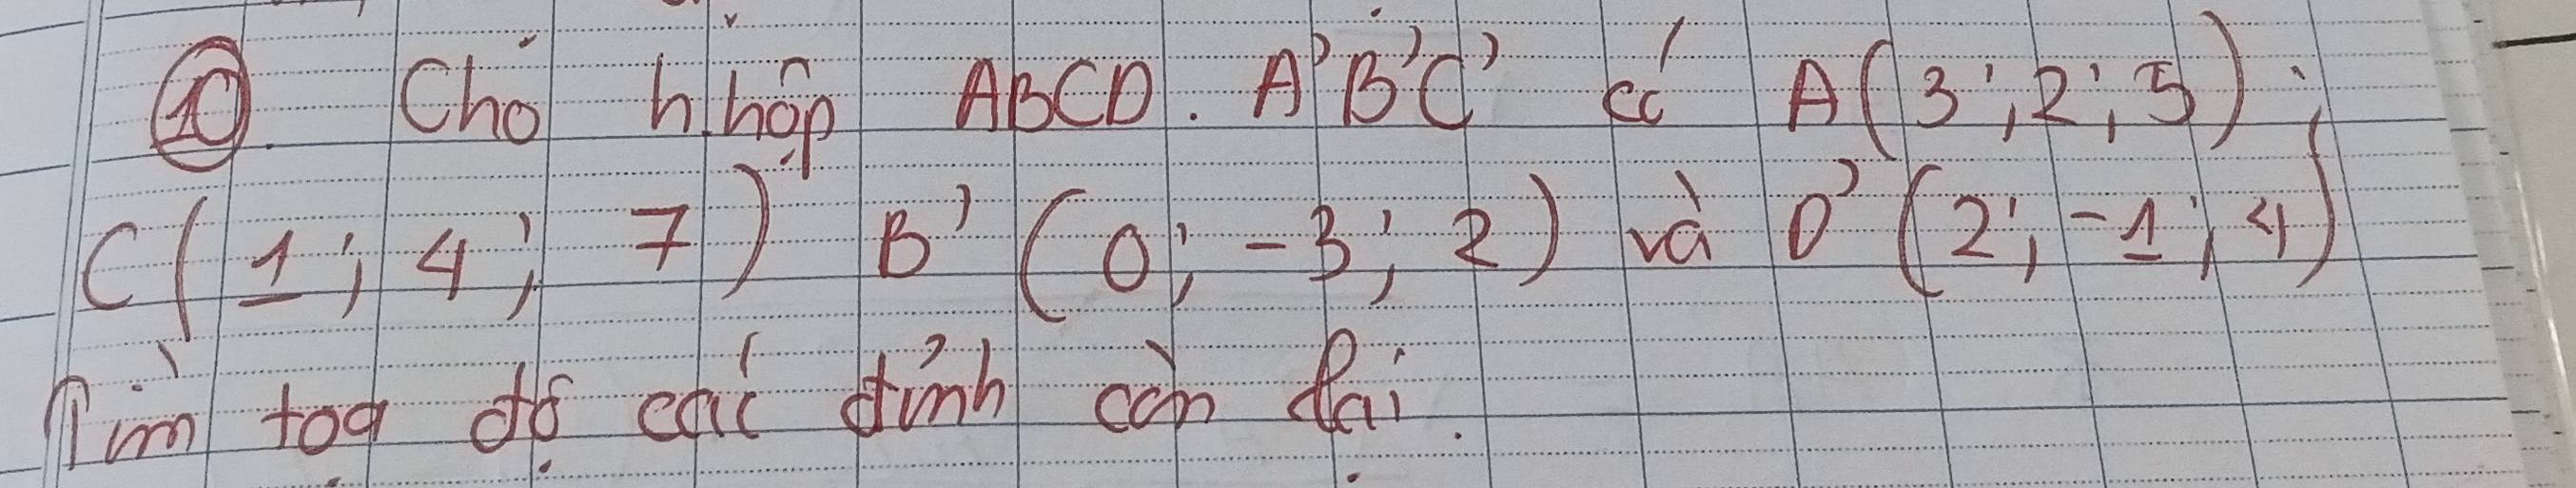 10. Cho h.hộp ABCD. A'B'C' có A(3;2;5);
C(1; 4; 7) B'(0; -3; 2) và D'(2; -1; 4)
Tìm toạ độ các đỉnh còn lại.